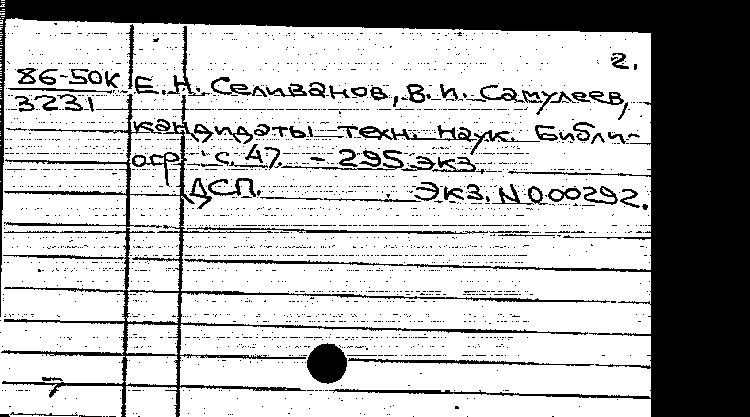 2.
86-50К Е.Н. Селиванов, В.И. Самулеев,
3231
кандидаты техн. наук. Библи-
огр с. 47. – 295 экз.
ДСП. Экз. N 000292.